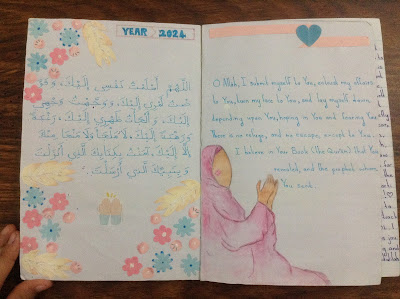 YEAR 2024
اللّهُمَّ أَسْلَمْتُ نَفْسِي إِلَيْكَ، وَفَوَّ
ضْتُ أَمْرِي إِلَيْكَ، وَوَجَّهْتُ وَجْهِي
إِلَيْكَ، وَأَلْجَأْتُ ظَهْرِي إِلَيْكَ، رَغْبَةً
وَرَهْبَةً إِلَيْكَ، لَا مَلْجَأَ وَلَا مَنْجَا مِنْكَ
إِلَّا إِلَيْكَ، آمَنْتُ بِكِتَابِكَ الَّذِي أَنْزَلْتَ
وَبِنَبِيِّكَ الَّذِي أَرْسَلْتَ.
O Allah, I submit myself to You, entrust my affairs
to You, turn my face to You, and lay myself down
depending upon You, hoping in You and fearing You.
There is no refuge, and no escape, except to You.
I believe in Your Book (the Quran) that You
revealed, and the prophet whom
You sent.